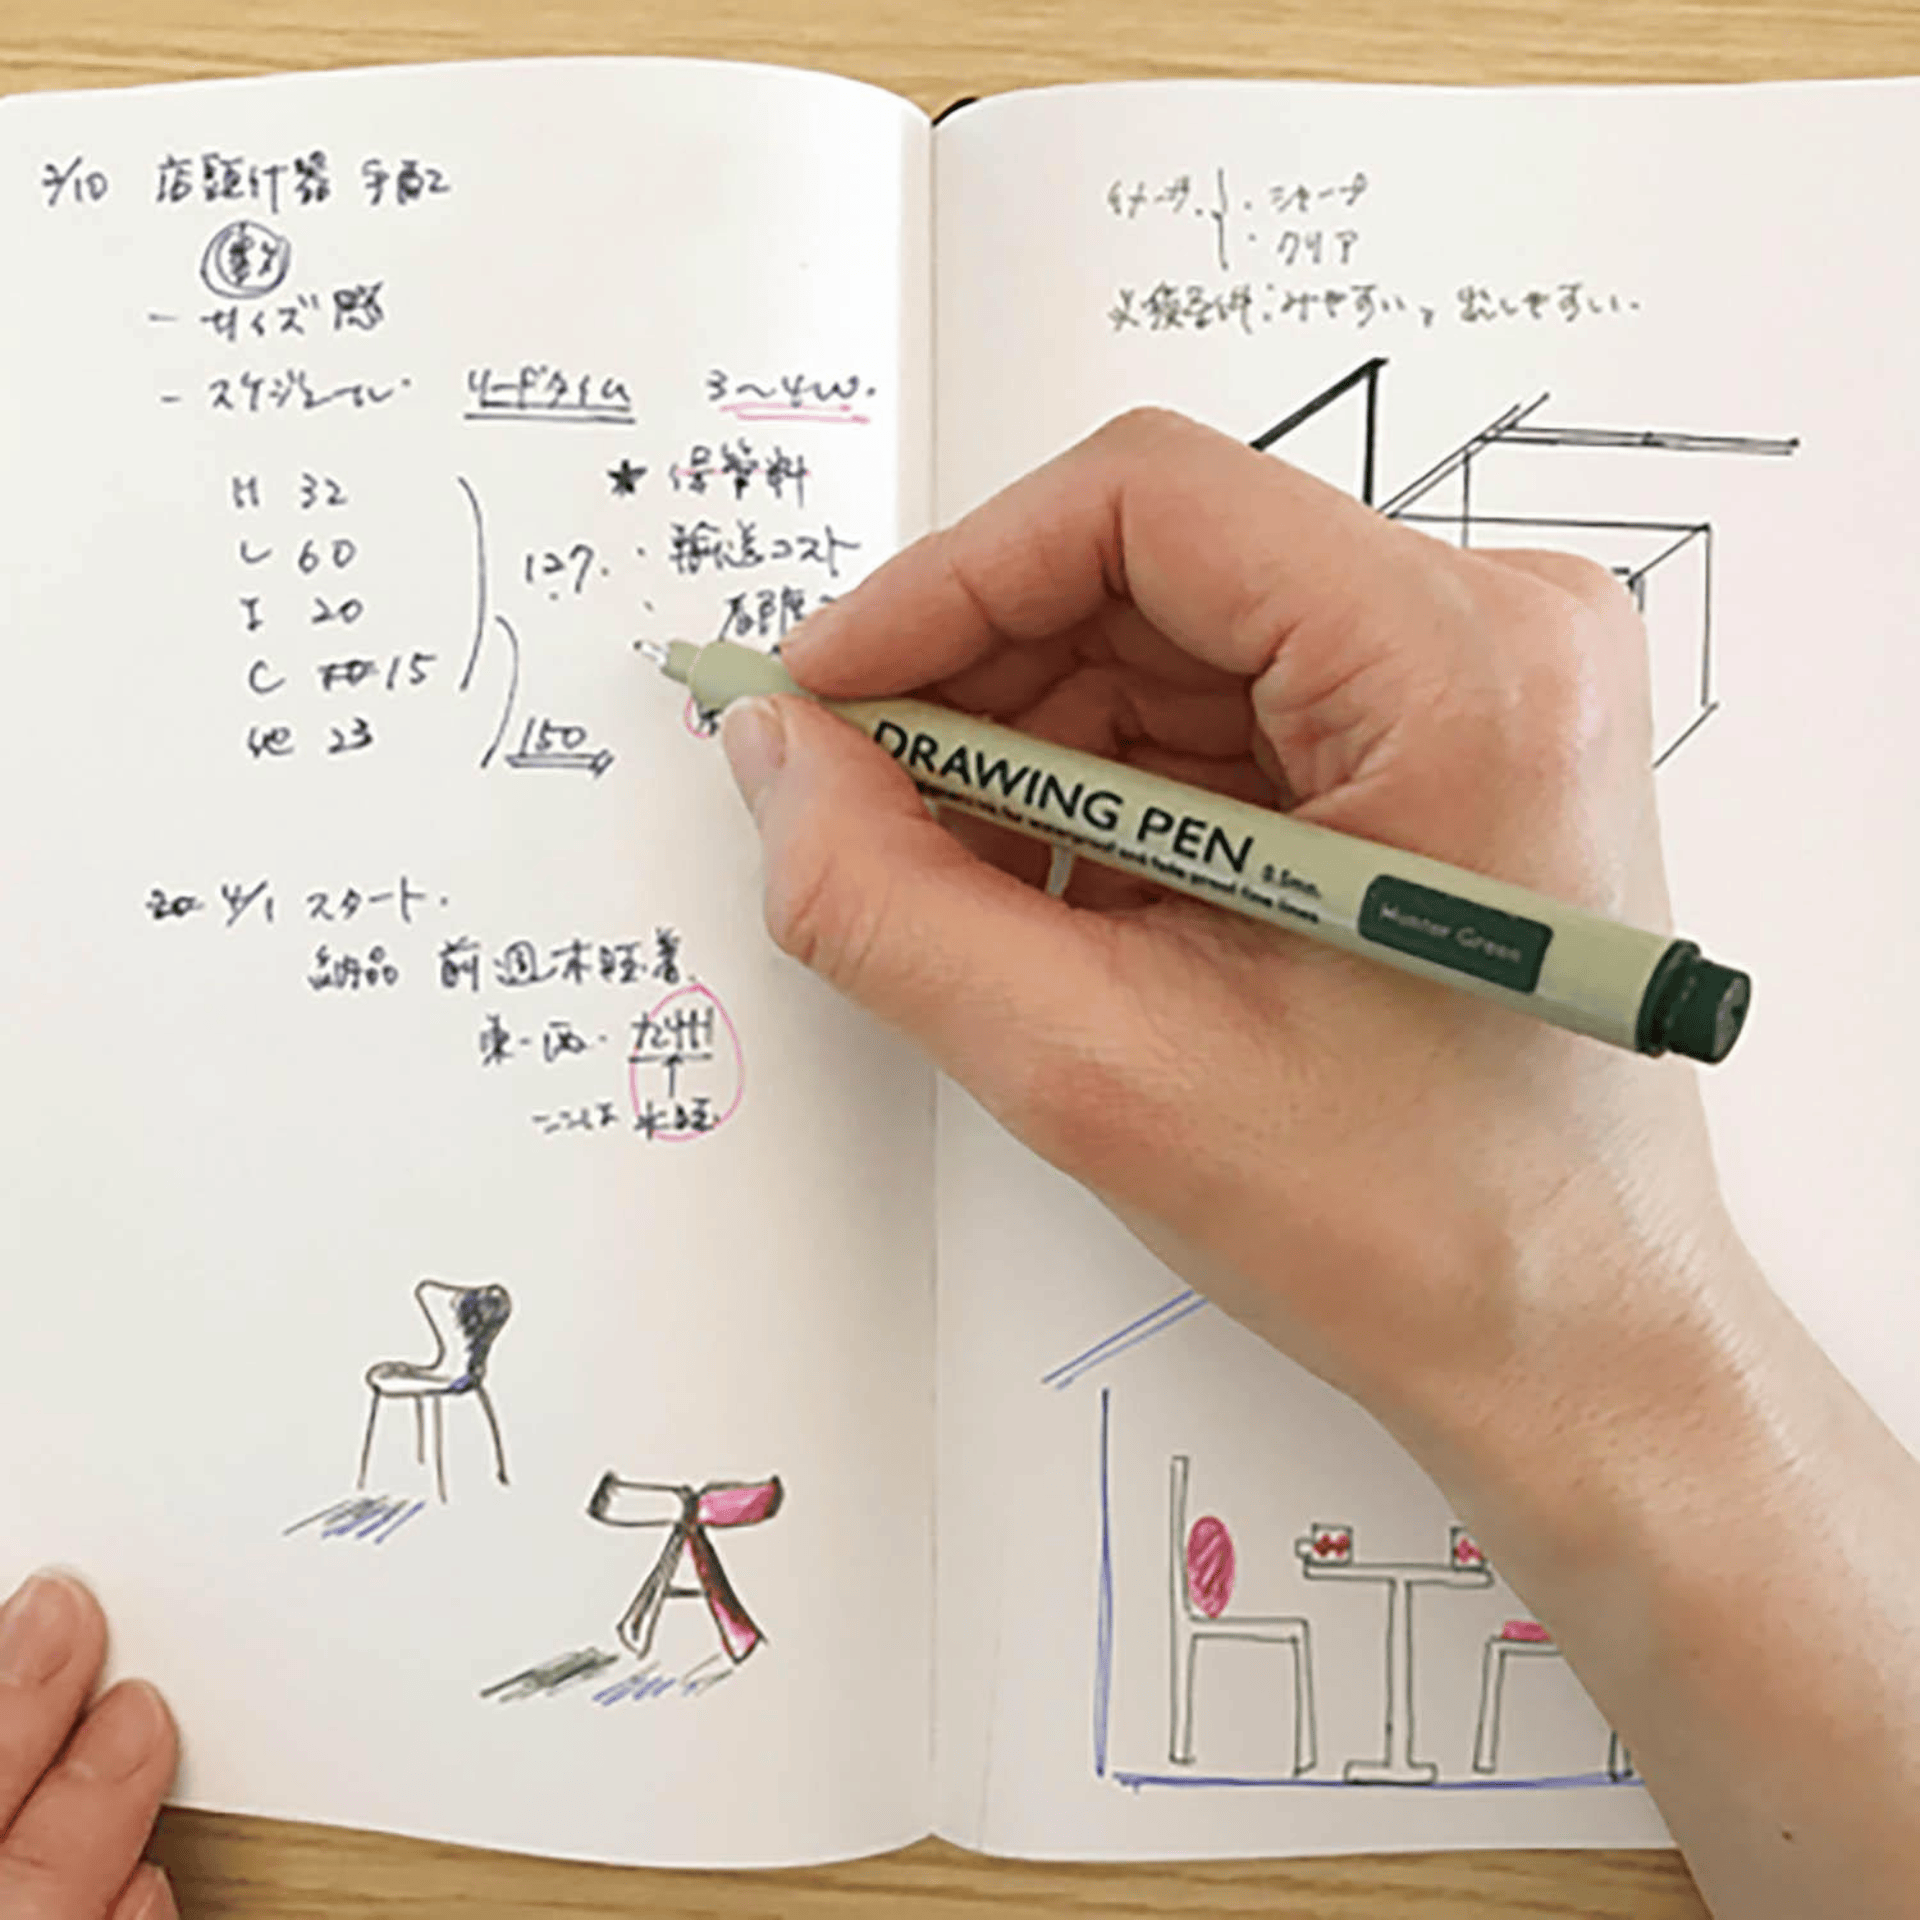 2/10 店頭什器 手配
- サイズ感
- スケジュール. リードタイム 3〜4w.
H 32
L 60
I 20
C 15
他 23
127.
150
★ 保管料
・ 輸送コスト
4/1 スタート.
納品 前週末必着.
東・西・九州
ここは
イメージ. ・シャープ
・クリア
必須条件:みやすい, 出しやすい.
DRAWING PEN 0.5mm.
Hunter Green